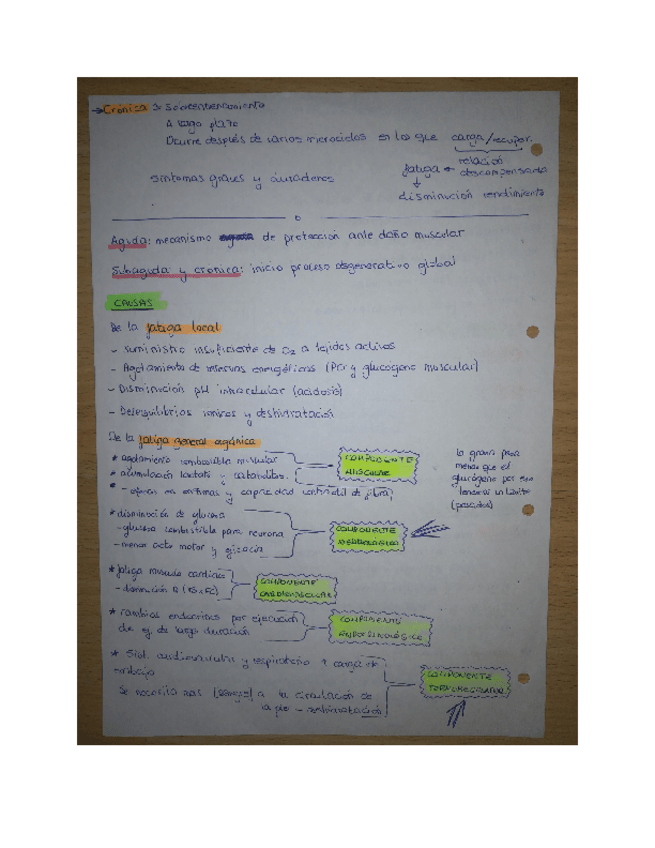 → Crónica → Sobreentrenamiento
A largo plazo
Ocurre después de varios microciclos en los que carga/recuper.
relación
fatiga ← descompensada
síntomas graves y duraderos
↓
disminución rendimiento
Aguda: mecanismo de protección ante daño muscular
Subaguda y crónica: inicio proceso degenerativo global
CAUSAS
De la fatiga local
- Suministro insuficiente de O2 a tejidos activos
- Agotamiento de reservas energéticas (PCr y glucógeno muscular)
- Disminución pH intracelular (acidosis)
- Desequilibrios iónicos y deshidratación
De la fatiga general orgánica
* agotamiento combustible muscular
* acumulación lactato y catabolitos.
* - en enzimas y capacidad contráctil de fibra
COMPONENTE
MUSCULAR
la grasa pesa
menos que el
glucógeno por eso
tenemos un límite
* disminución de glucosa
- glucosa combustible para neurona
- menor acto motor y eficacia
COMPONENTE
NEUROLÓGICO
* fatiga músculo cardíaco
- disminución Q (VSxFC)
COMPONENTE
CARDIOVASCULAR
* cambios endocrinos por ejecución
de ej. de larga duración
COMPONENTE
ENDOCRINOLÓGICO
* Sist. cardiovascular y respiratorio ↑ carga de
trabajo
Se necesita más (sangre) a la circulación de
la piel - deshidratación
COMPONENTE
TERMORREGULADOR